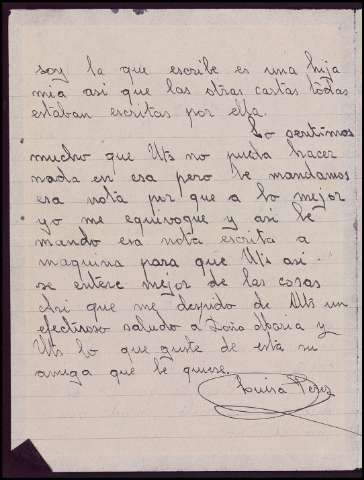 soy la que escribe es una hija
mia asi que las otras cartas todas
estaban escritas por ella.
Lo sentimos
mucho que Uts no pueda hacer
nada en esa pero le mandamos
esa nota por que a lo mejor
yo me equivoque y asi le
mando esa nota escrita a
maquina para que Uts asi
se entere mejor de las cosas
Asi que me despido de Uts un
efectuoso saludo a Doña Maria y
Uts lo que guste de esta su
amiga que le quiere.
Luisa Perez